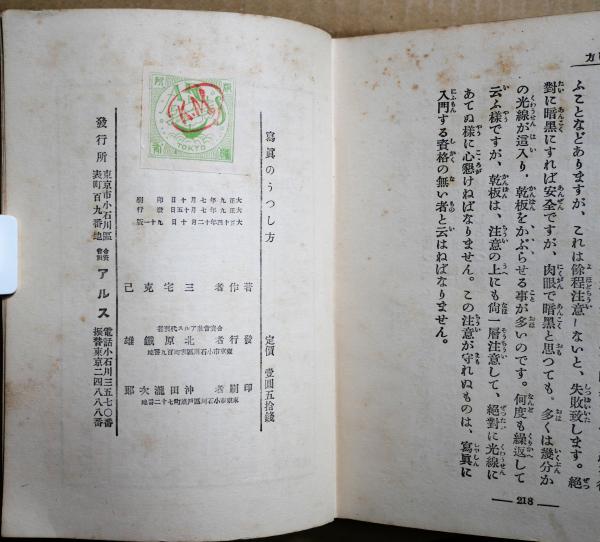 ふことなどありますが、これは餘程注意しないと、失敗致します。絕
對に暗黑にすれば安全ですが、肉眼で暗黑と思つても。多くは幾分か
の光線が這入り、乾板をかぶらせる事が多いのです。何度も繰返して
云ふ様ですが、乾板は、注意の上にも尙一層注意して、絕對に光線に
あてぬ様に心懸けねばなりません。この注意が守れぬものは、寫眞に
入門する資格の無い者と云はねばなりません。
218
寫眞のうつし方
大正九年七月十日印刷
大正九年七月十五日發行
大正十四年十二月十日九十一版
定價 壹圓五拾錢
著作者 三宅克己
合資會社アルス代表者
發行者 北原鐵雄
東京市小石川區表町百九番地
印刷者 沖田瀧次郎
東京市小石川區戶崎町七十二番地
發行所
東京市小石川區
表町百九番地
合資會社 アルス
電話小石川三五七〇番
振替東京二四八八八番
KM
TOKYO